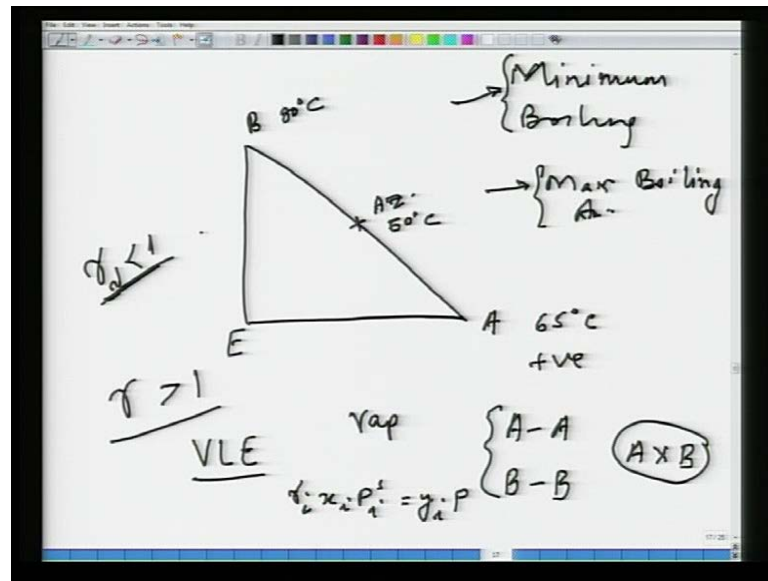 File Edit View Insert Actions Tools Help
Minimum
Boiling
B 80°C
Max Boiling
Az.
Az.
50°C
γ < 1
E
A 65°C
+ve
γ > 1
VLE
Vap
A-A
A × B
B-B
γᵢ xᵢ Pᵢˢ = yᵢ P